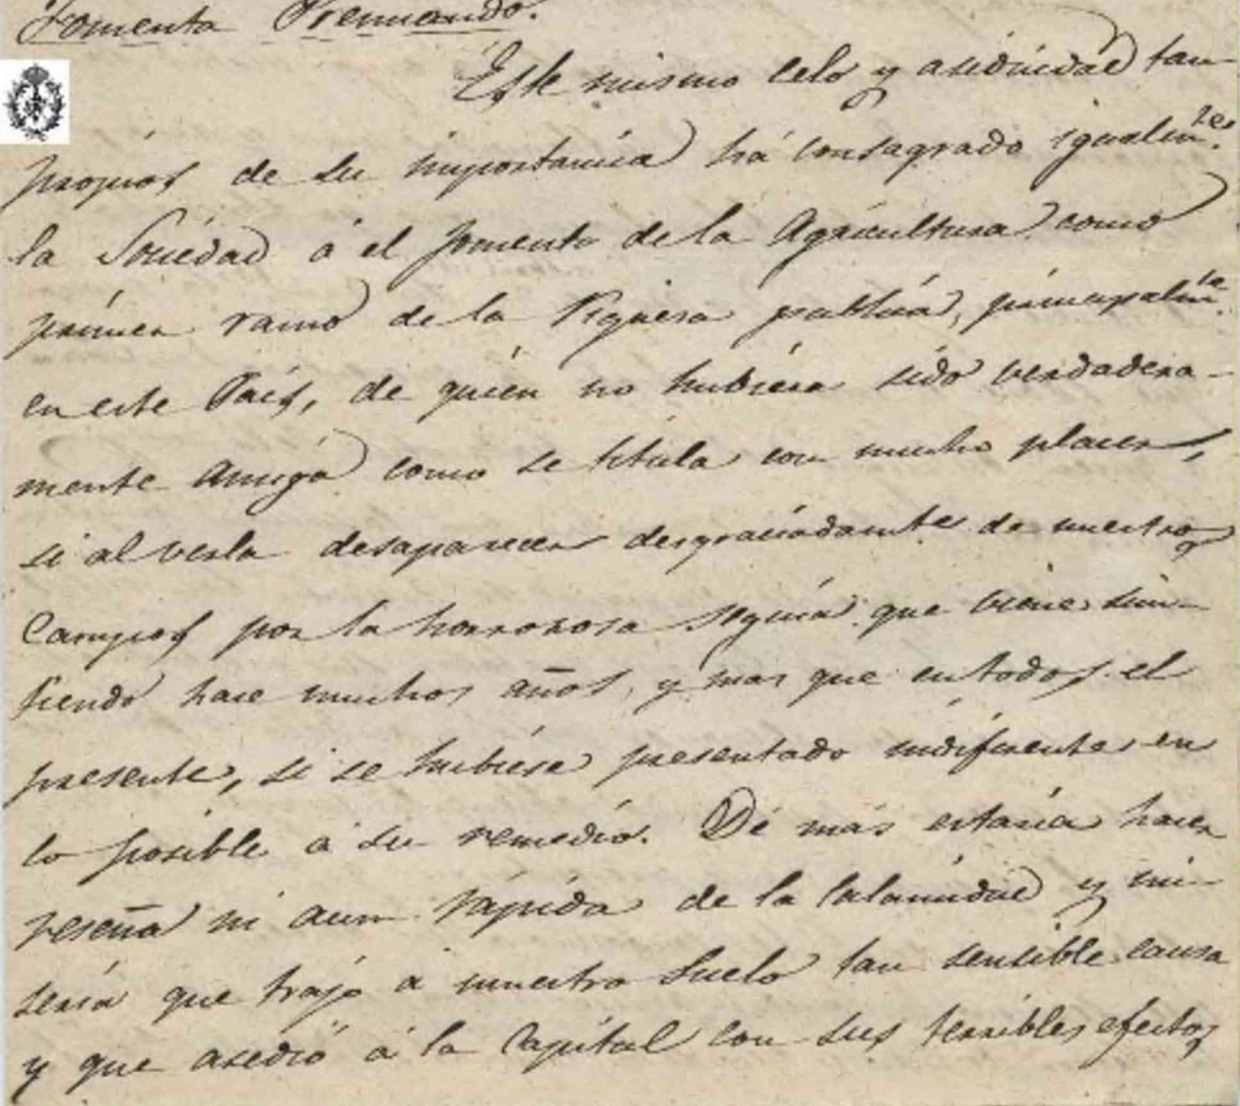 Fomenta Premiando.
Este mismo celo y asiduidad tan
propios de su importancia há consagrado igualm.te
la Sociedad á el fomento de la Agricultura como
primer ramo de la Riqueza publica, principalm.te
en este País, de quien no hubiera sido verdadera-
mente Amiga como se titula con mucho placer,
si al verla desaparecer desgraciadamte de nuestros
Campos por la horrorosa sequía que viene sin-
tiendo hace muchos años, y mas que en todos el
presente, si se hubiese presentado indiferente en
lo posible á su remedio. De más estaría hacer
reseña ni aun rápida de la Calamidad y mi-
seria que trajo a nuestro Suelo tan sensible causa
y que asedió á la Capital con sus terribles efectos